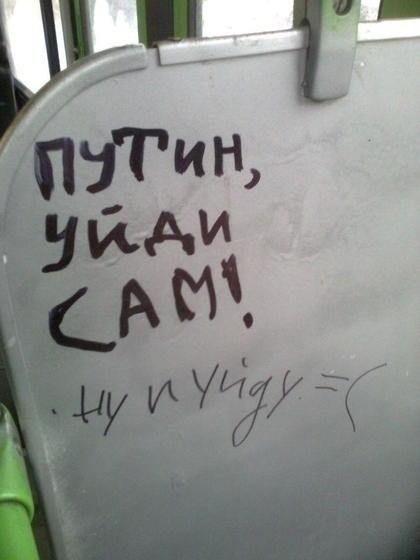 ПУТИН,
УЙДИ
САМ!
ну и уйду =(